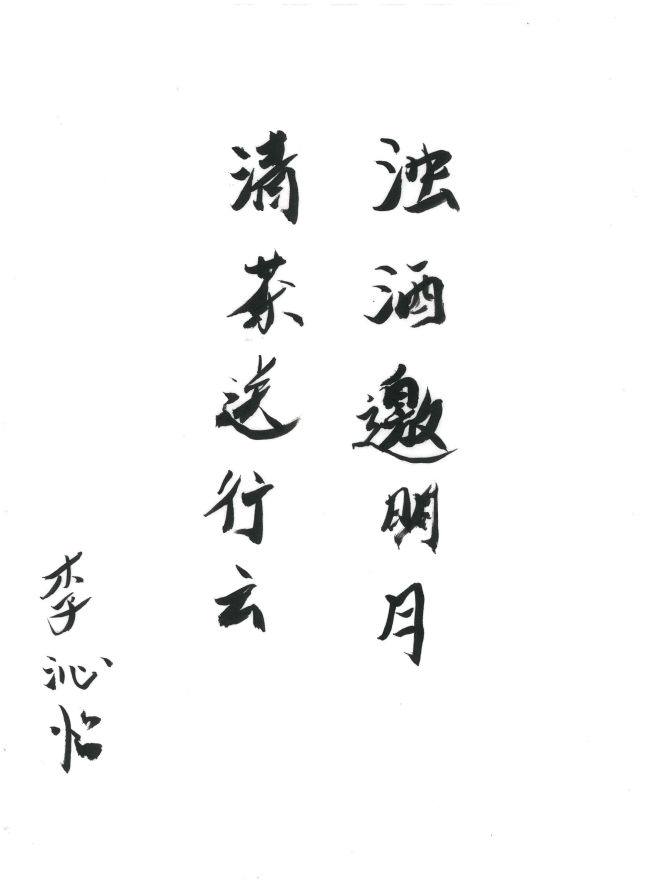 浊酒邀明月
清茶送行云
李沁怡